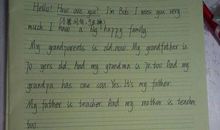 Hello! How are you? I'm Bob. I miss you very
much. I have a big happy family.
My grandparents is old now. My grandfather is
70 years old. And my grandma is 70 too. And my
grandpa has one son. Yes. It's my father.
My father is teacher. And my mother is teacher
too.